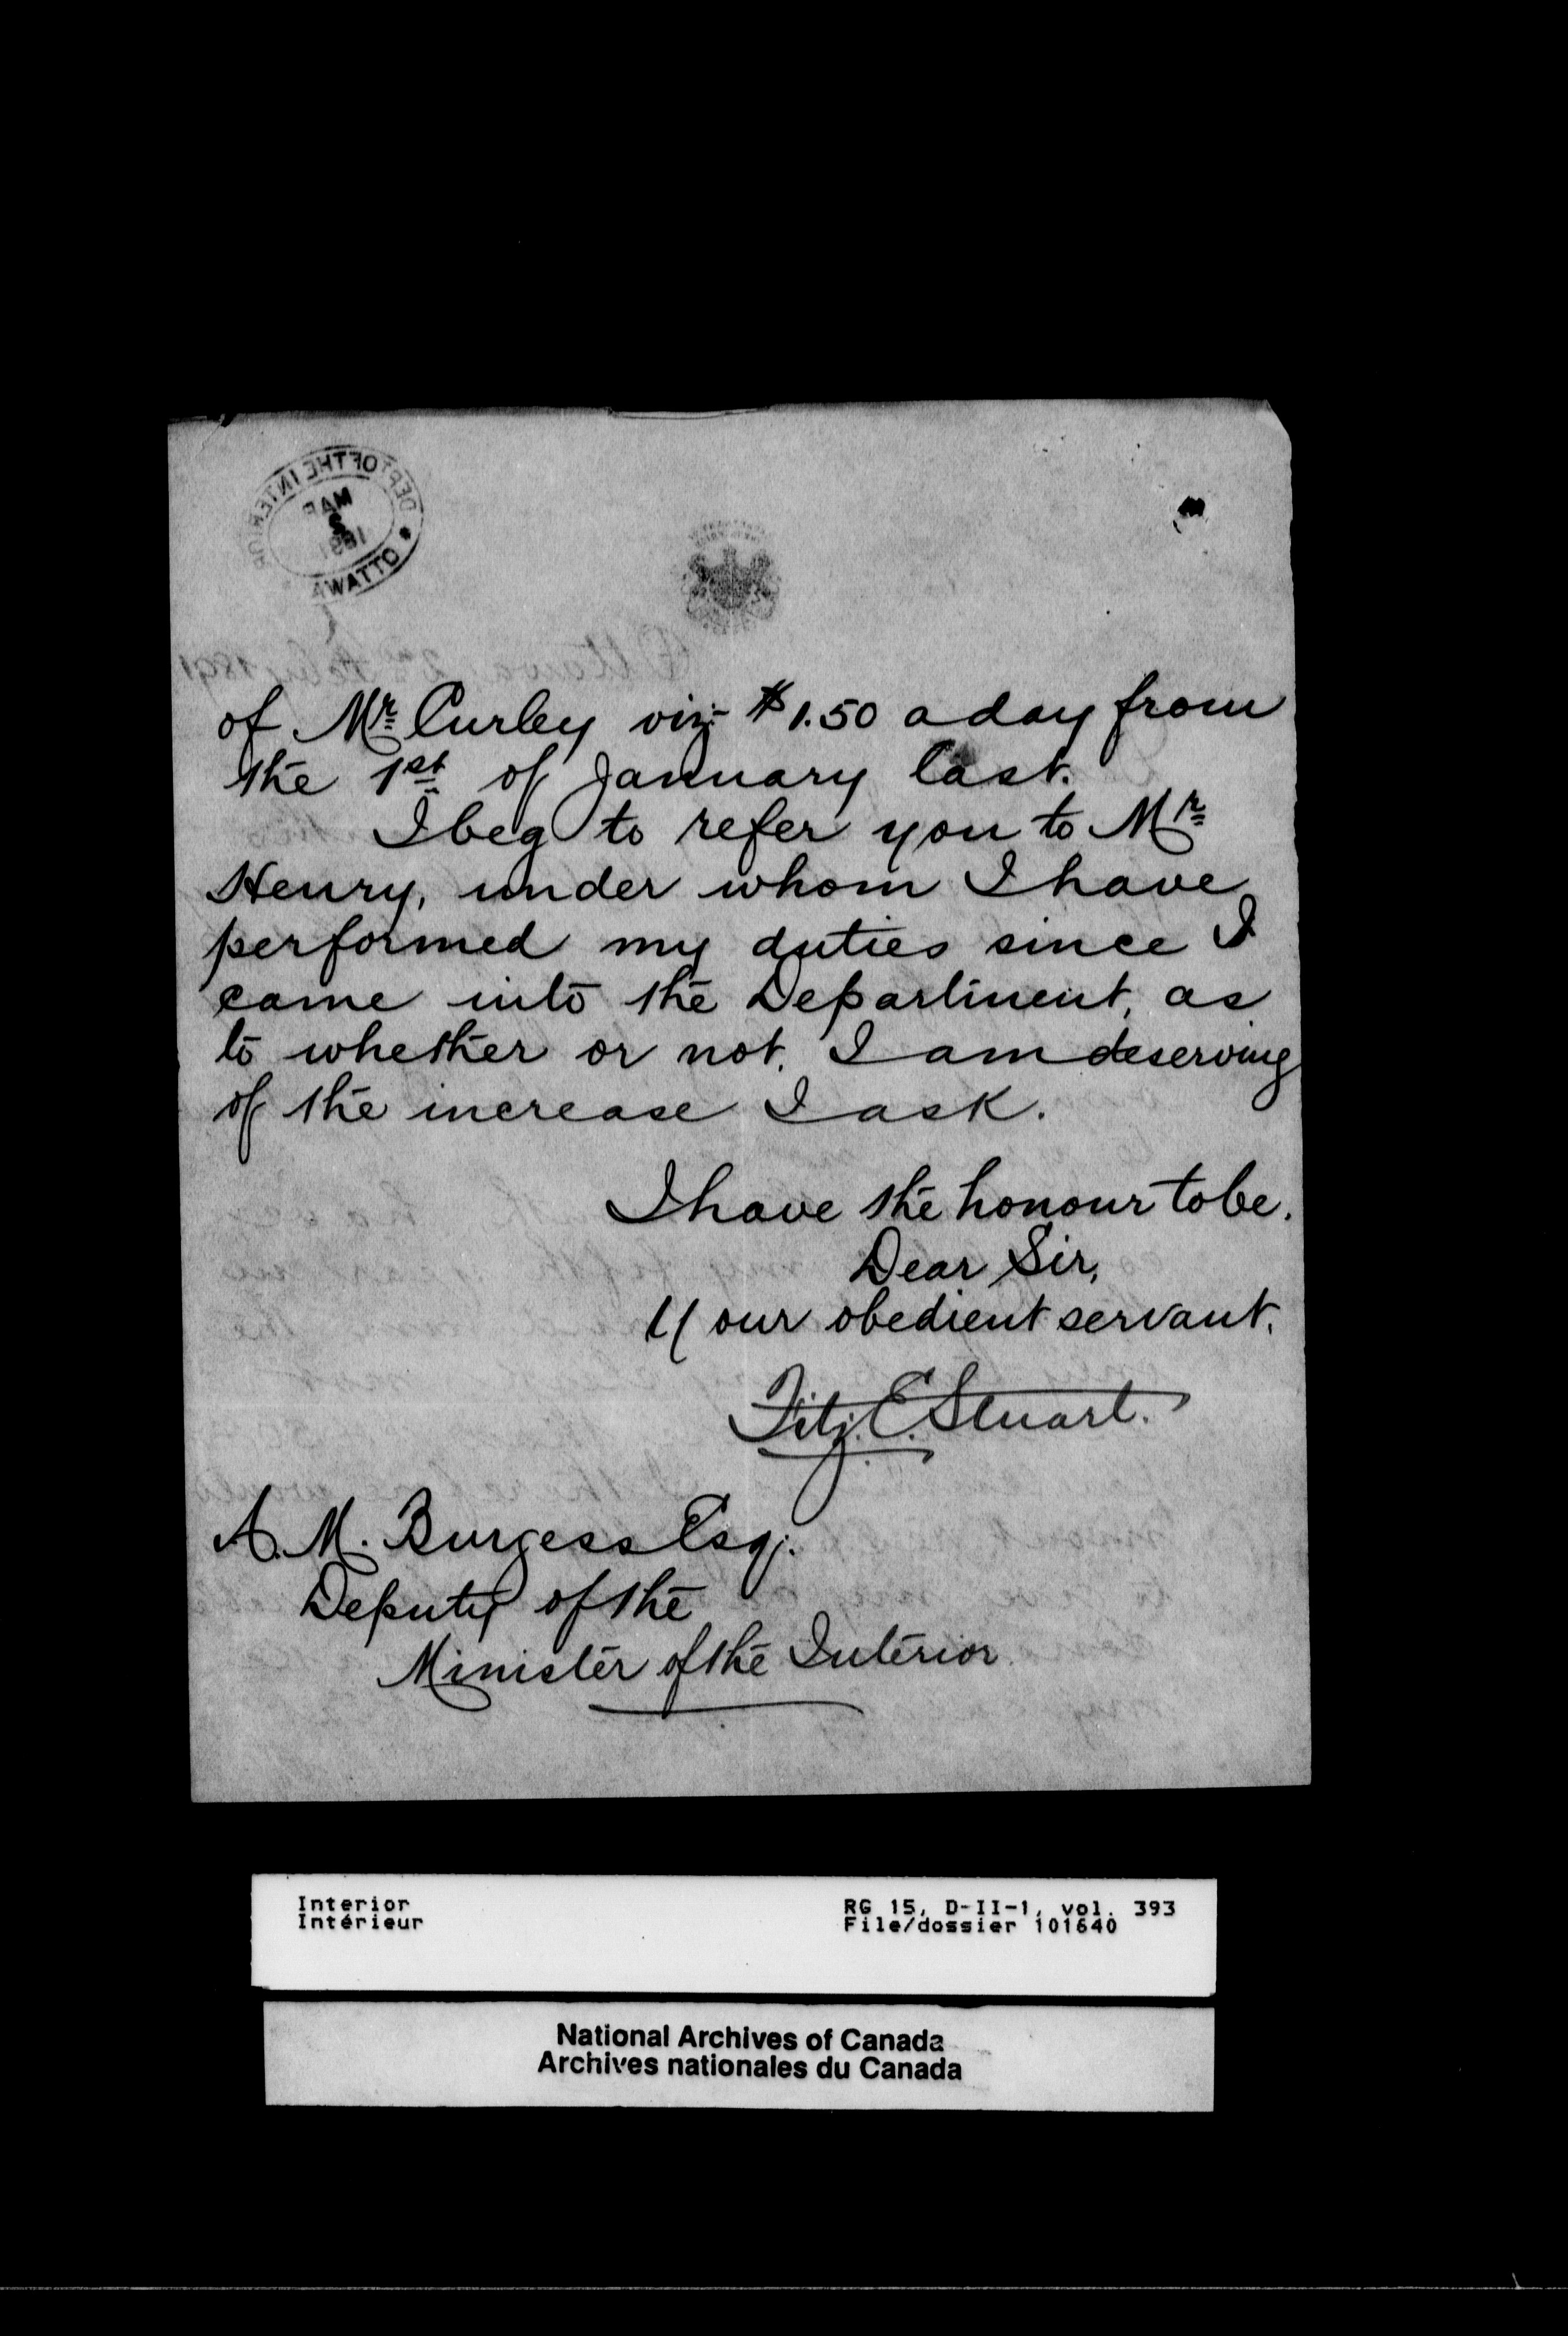 DEPT OF THE INTERIOR
MAR
1891
OTTAWA
of Mr. Curley viz:- $1.50 a day from
the 1st of January last.
I beg to refer you to Mr.
Henry, under whom I have
performed my duties since I
came into the Department, as
to whether or not, I am deserving
of the increase I ask.
I have the honour to be,
Dear Sir,
Your obedient servant,
Fitz. E. Stuart.
A. M. Burgess Esq.
Deputy of the
Minister of the Interior
Interior
Intérieur
RG 15, D-II-1, vol. 393
File/dossier 101640
National Archives of Canada
Archives nationales du Canada